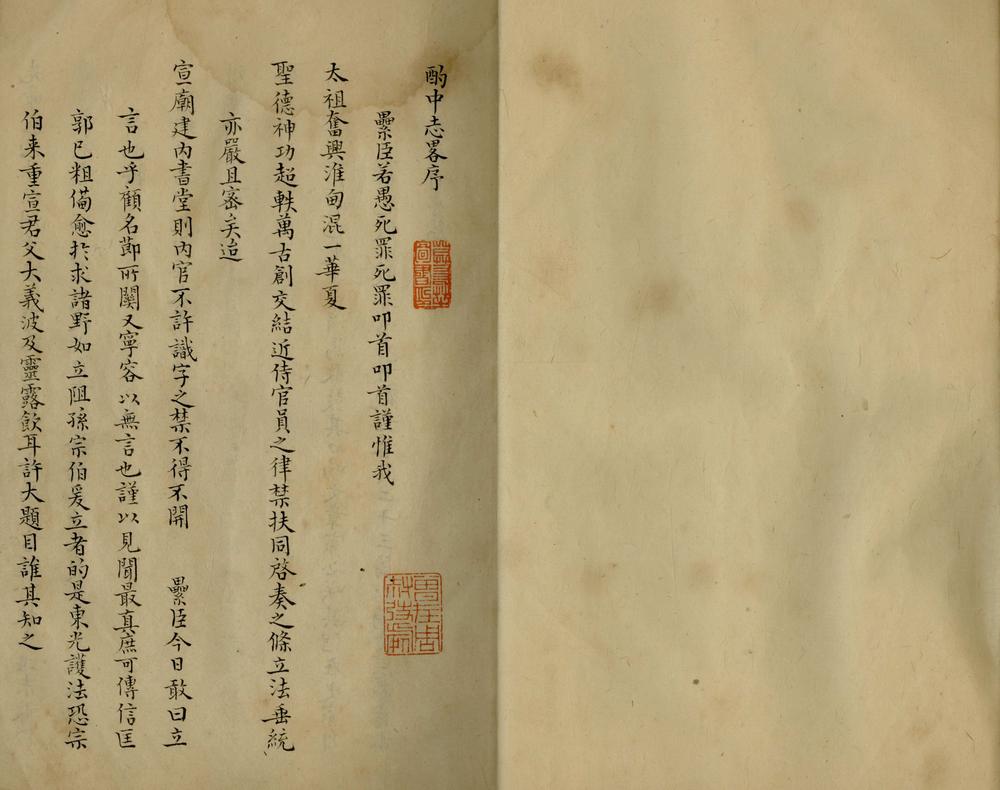 酌中志畧序
纍臣若愚死罪死罪叩首叩首謹惟我
太祖奮興淮甸混一華夏
聖德神功超軼萬古創交結近侍官員之律禁扶同啓奏之條立法垂統
亦嚴且密矣迨
宣廟建內書堂則內官不許識字之禁不得不開　纍臣今日敢曰立
言也乎顧名節所關又寧容以無言也謹以見聞最真庶可傳信匡
郭已粗俻愈於求諸野如立阻孫宗伯爰立者的是東光護法恐宗
伯来重宣君父大義波及靈露飲耳許大題目誰其知之